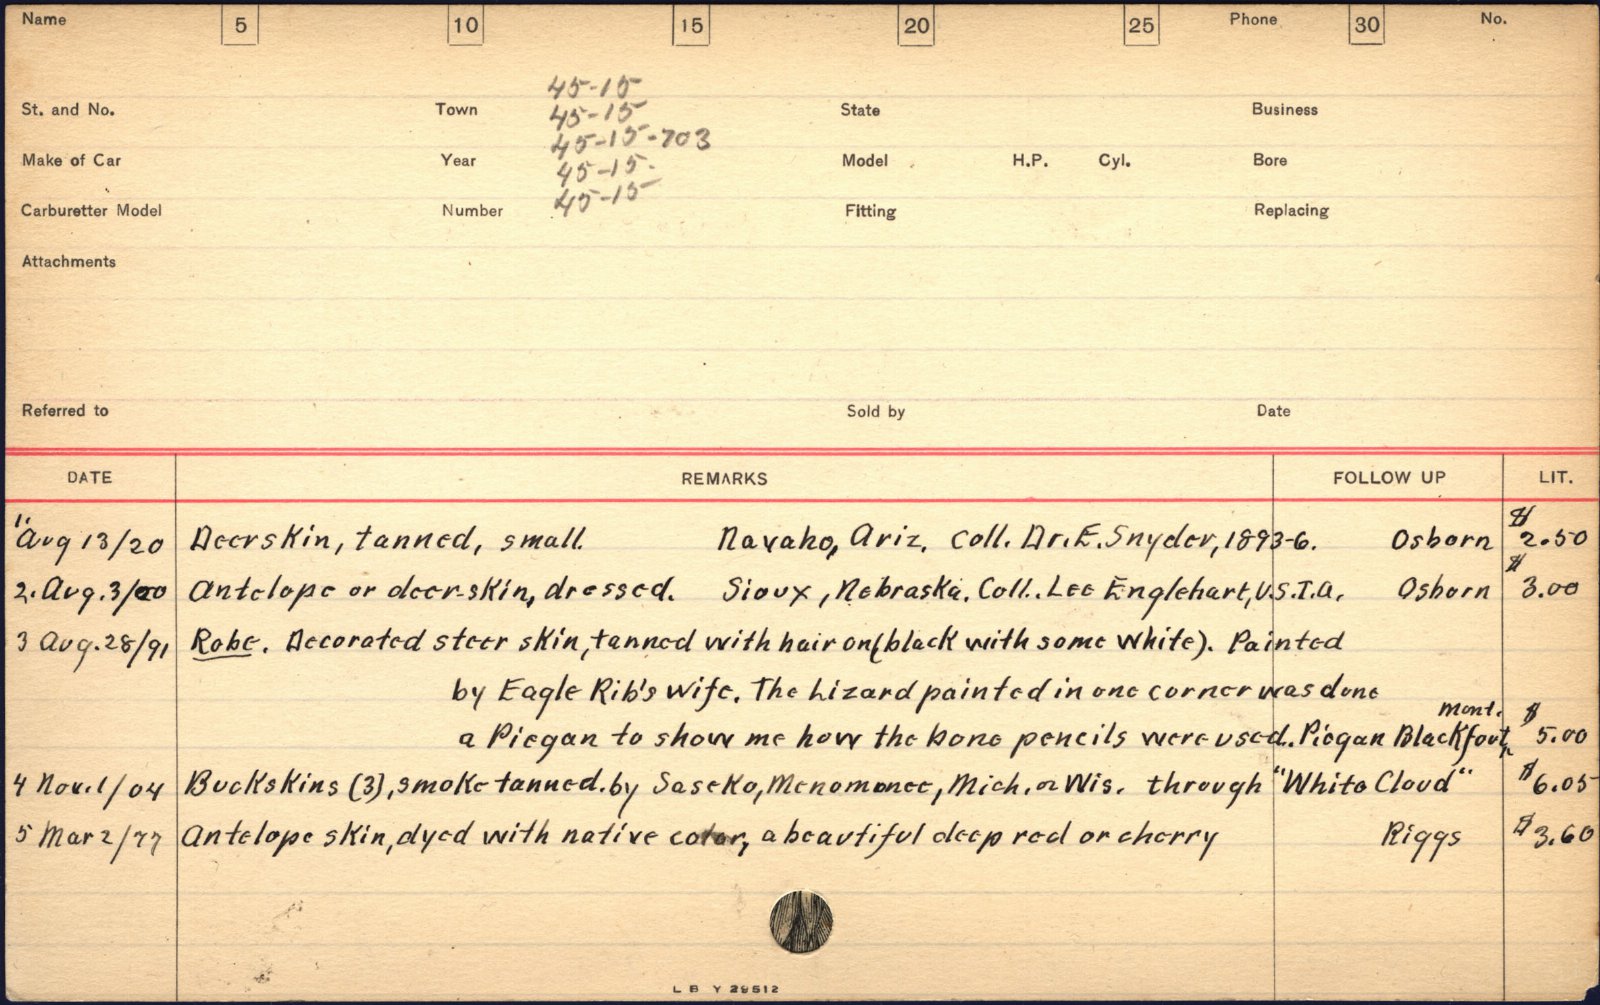 Name 5 10 15 20 25 Phone 30 No.
45-15
St. and No. Town 45-15 State Business
45-15-703
Make of Car Year 45-15. Model H.P. Cyl. Bore
Carburetter Model Number 45-15 Fitting Replacing
Attachments
Referred to Sold by Date
DATE REMARKS FOLLOW UP LIT.
1" Aug 13/20 Deerskin, tanned, small. Navaho, Ariz. Coll. Dr. E. Snyder, 1893-6. Osborn $2.50
2. Aug. 3/00 Antelope or deer-skin, dressed. Sioux, Nebraska. Coll. Lee Englehart, U.S.I.A. Osborn $3.00
3 Aug. 28/91 Robe. Decorated steer skin, tanned with hair on (black with some white). Painted
by Eagle Rib's wife. The Lizard painted in one corner was done
a Piegan to show me how the bone pencils were used. Piegan Blackfoot, Mont. $5.00
4 Nov. 1/04 Buckskins (3), smoke tanned. by Saseko, Menomonee, Mich. or Wis. through "White Cloud" $6.05
5 Mar 2/77 Antelope skin, dyed with native color, a beautiful deep red or cherry Riggs $3.60
L B Y 29512